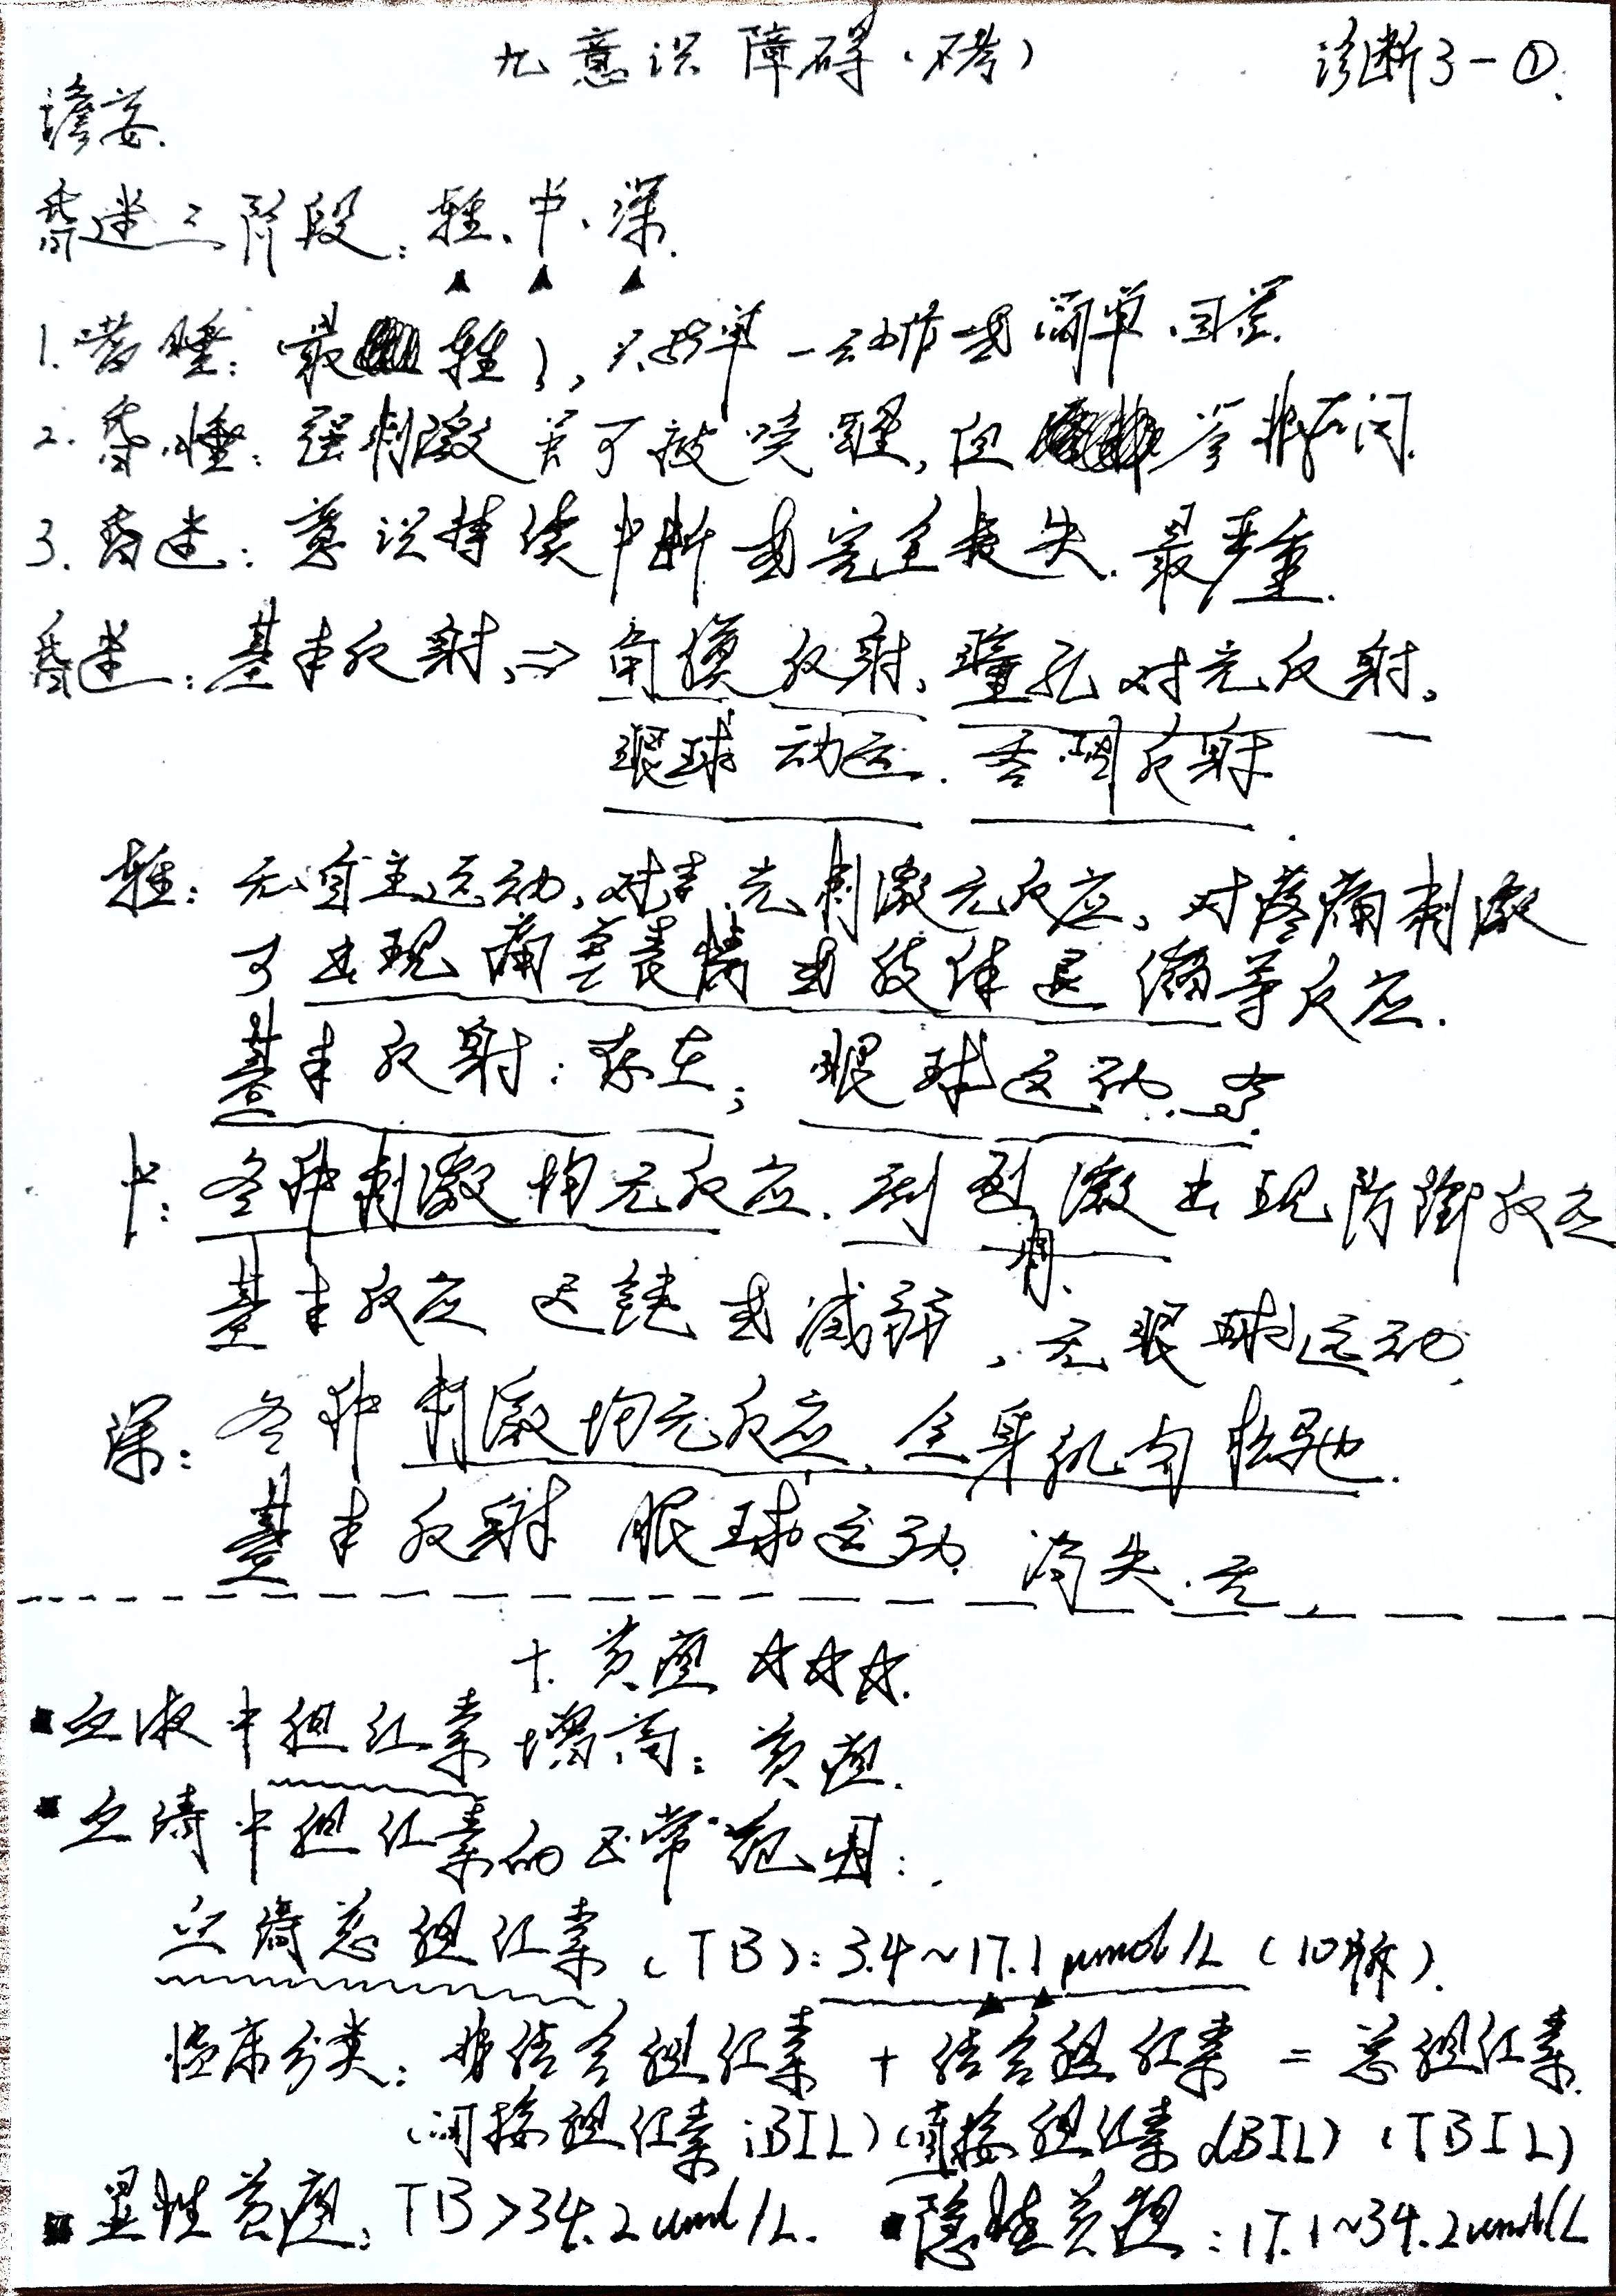 九 意识障碍（不考） 诊断3-①.
谵妄.
昏迷三阶段：轻、中、深.
1. 嗜睡：最轻，只能单一动作或简单回答.
2. 昏睡：强刺激 可被唤醒，但答非所问.
3. 昏迷：意识持续中断或完全丧失. 最严重.
昏迷：基本反射，⇒ 角膜反射、瞳孔对光反射、
眼球动运. 吞咽反射.
轻：无自主运动，对声、光刺激无反应，对疼痛刺激
可出现痛苦表情或肢体退缩等反应.
基本反射：存在；眼球运动
中：各种刺激均无反应. 剧烈 激出现防御反应
基本反应 迟钝或减弱，无眼球运动.
深：各种刺激均无反应、全身肌肉松弛.
基本反射 眼球运动 消失.无
十. 黄疸 ☆☆☆.
血液中胆红素增高：黄疸.
血清中胆红素的正常范围：
血清总胆红素（TB）：3.4~17.1μmol/L（10版）.
临床分类：非结合胆红素 + 结合胆红素 = 总胆红素.
（间接胆红素 iBIL）（直接胆红素 dBIL）（TBIL）
显性黄疸：TB>34.2umol/L. 隐性黄疸：17.1~34.2umol/L